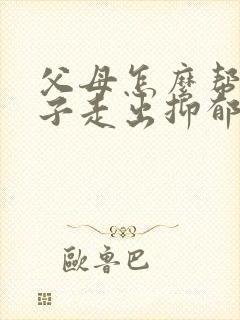 父母怎麼幫
子走出抑郁
歐魯巴